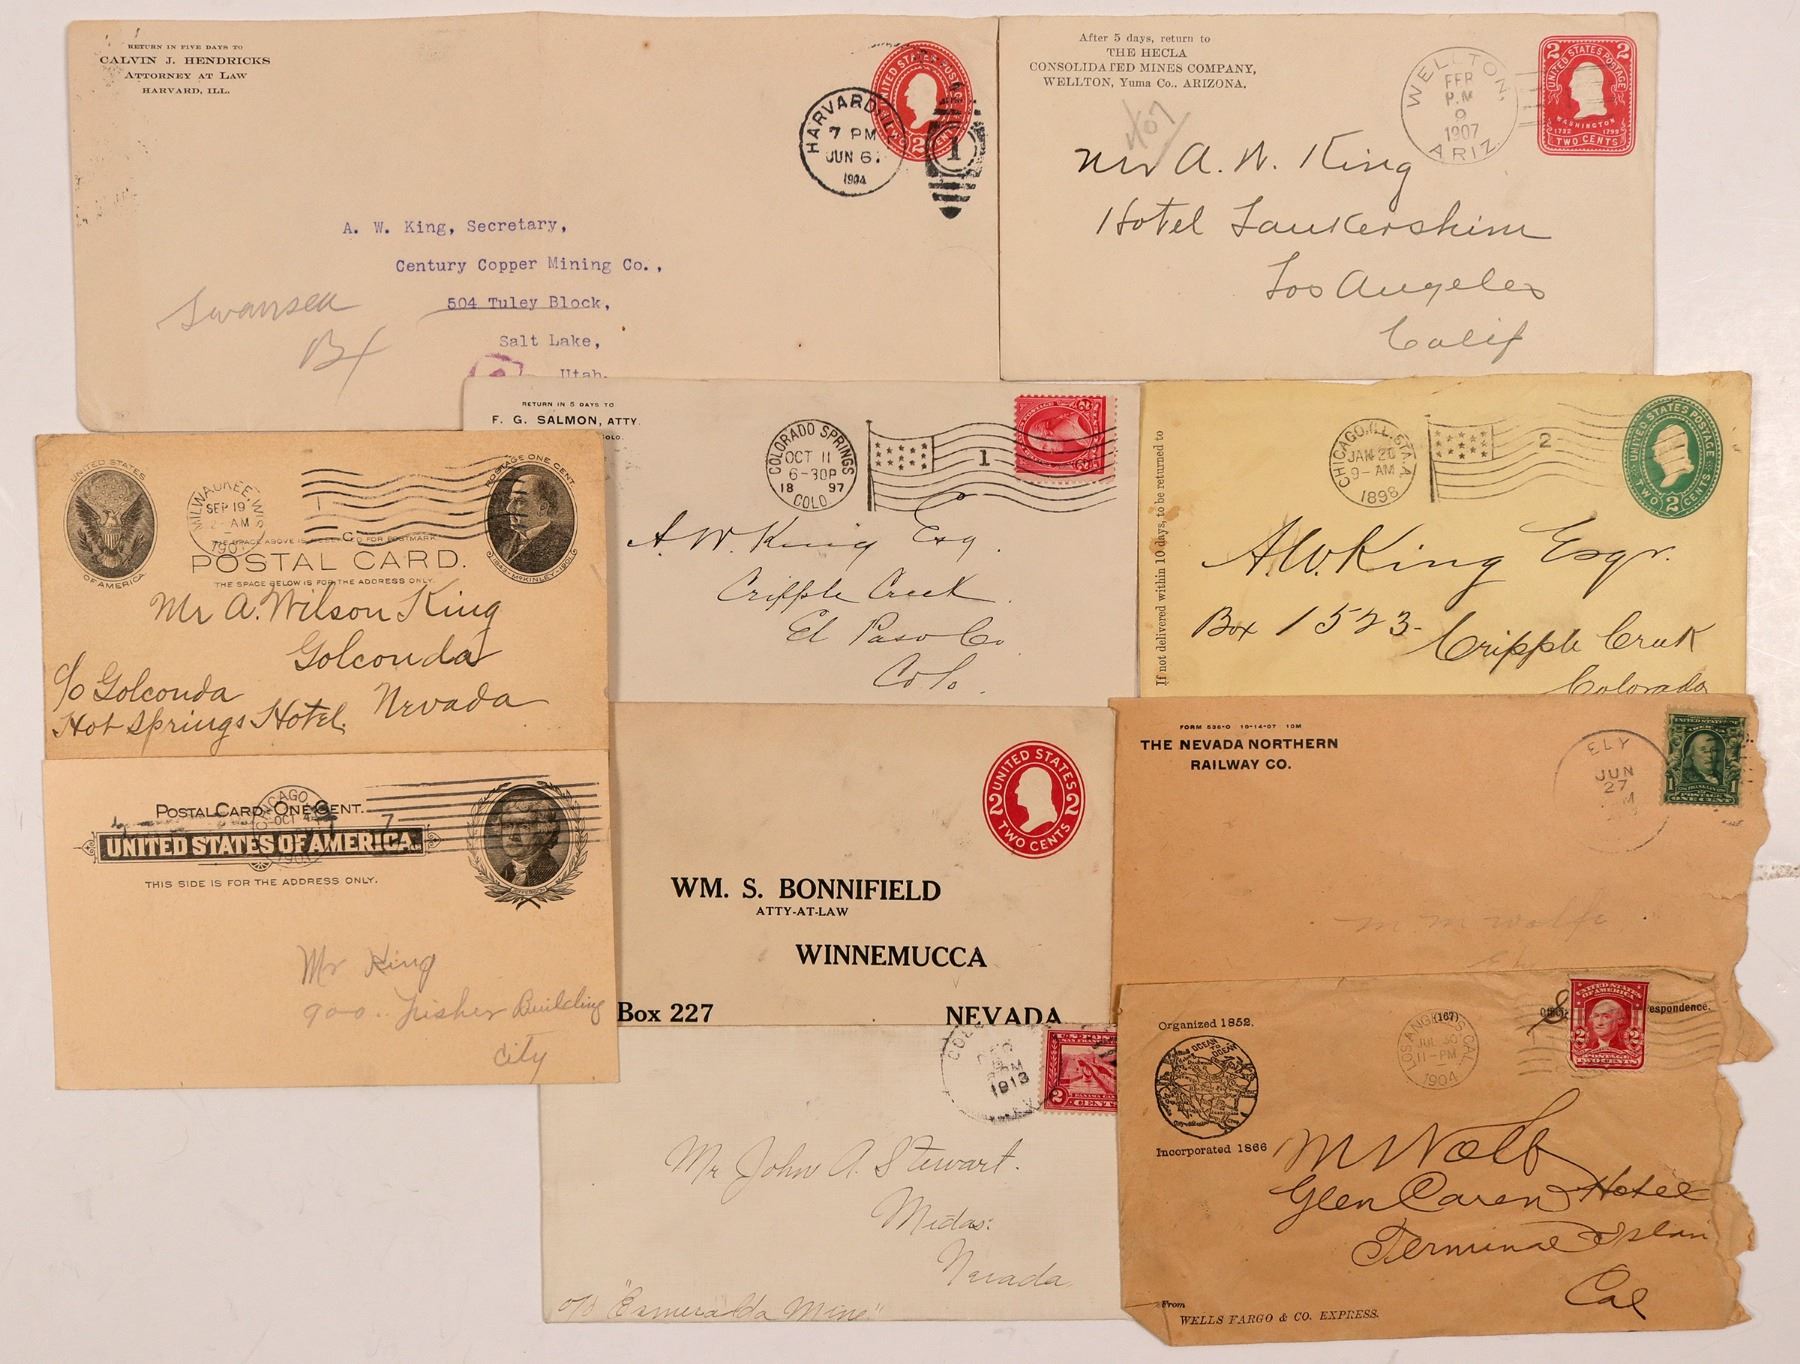 RETURN IN FIVE DAYS TO
CALVIN J. HENDRICKS
ATTORNEY AT LAW
HARVARD, ILL.
HARVARD, ILL.
7 PM
JUN 6
1904
1
UNITED STATES POSTAGE
2 CENTS
A. W. King, Secretary,
Century Copper Mining Co.,
504 Tuley Block,
Salt Lake,
Utah.
Swansea
Bx
After 5 days, return to
THE HECLA
CONSOLIDATED MINES COMPANY,
WELLTON, Yuma Co., ARIZONA.
WELLTON,
FEB
P.M
9
1907
ARIZ.
2 UNITED STATES POSTAGE 2
WASHINGTON
1732 1799
TWO CENTS
Mr A. W. King
Hotel Lankershim
Los Angeles
Calif
RETURN IN 5 DAYS TO
F. G. SALMON, ATTY
COLO.
COLORADO SPRINGS
OCT 11
6-30P
18 97
COLO.
1
A. W. King Esq.
Cripple Creek
El Paso Co
Colo.
If not delivered within 10 days, to be returned to
CHICAGO, ILL. STA. A
JAN 20
9-AM
1898
2
UNITED STATES POSTAGE
TWO 2 CENTS
A. W. King Esqr.
Box 1523-
Cripple Creek
Colorado
UNITED STATES
OF AMERICA
MILWAUKEE, WIS
SEP 19
AM
POSTAGE ONE CENT
1843-McKINLEY-1901
THE SPACE ABOVE IS RESERVED FOR POSTMARK
POSTAL CARD.
THE SPACE BELOW IS FOR THE ADDRESS ONLY.
Mr A. Wilson King
Golconda
Nevada
c/o Golconda
Hot Springs Hotel.
CHICAGO
OCT
7
POSTAL CARD-ONE CENT.
UNITED STATES OF AMERICA.
THIS SIDE IS FOR THE ADDRESS ONLY.
JEFFERSON
Mr King
900. Fisher Building
City
UNITED STATES
2 2
TWO CENTS
WM. S. BONNIFIELD
ATTY-AT-LAW
WINNEMUCCA
Box 227
NEVADA
FORM 536-O 10-14-07 10M
THE NEVADA NORTHERN
RAILWAY CO.
ELY
JUN
27
M
ONE CENT
1913
U.S. POSTAGE
SAN FRANCISCO
2 CENTS
Mr John A. Stewart.
Midas:
Nevada
c/o "Esmeralda Mine"
Organized 1852.
Incorporated 1866
LOS ANGELES, CAL.
JUL 30
11-PM
1904
(167)
espondence.
UNITED STATES
OF AMERICA
2 2
TWO CENTS
M Wolf
Glen Caren Hotel
Terminal Islan
Cal
From
WELLS FARGO & CO. EXPRESS.